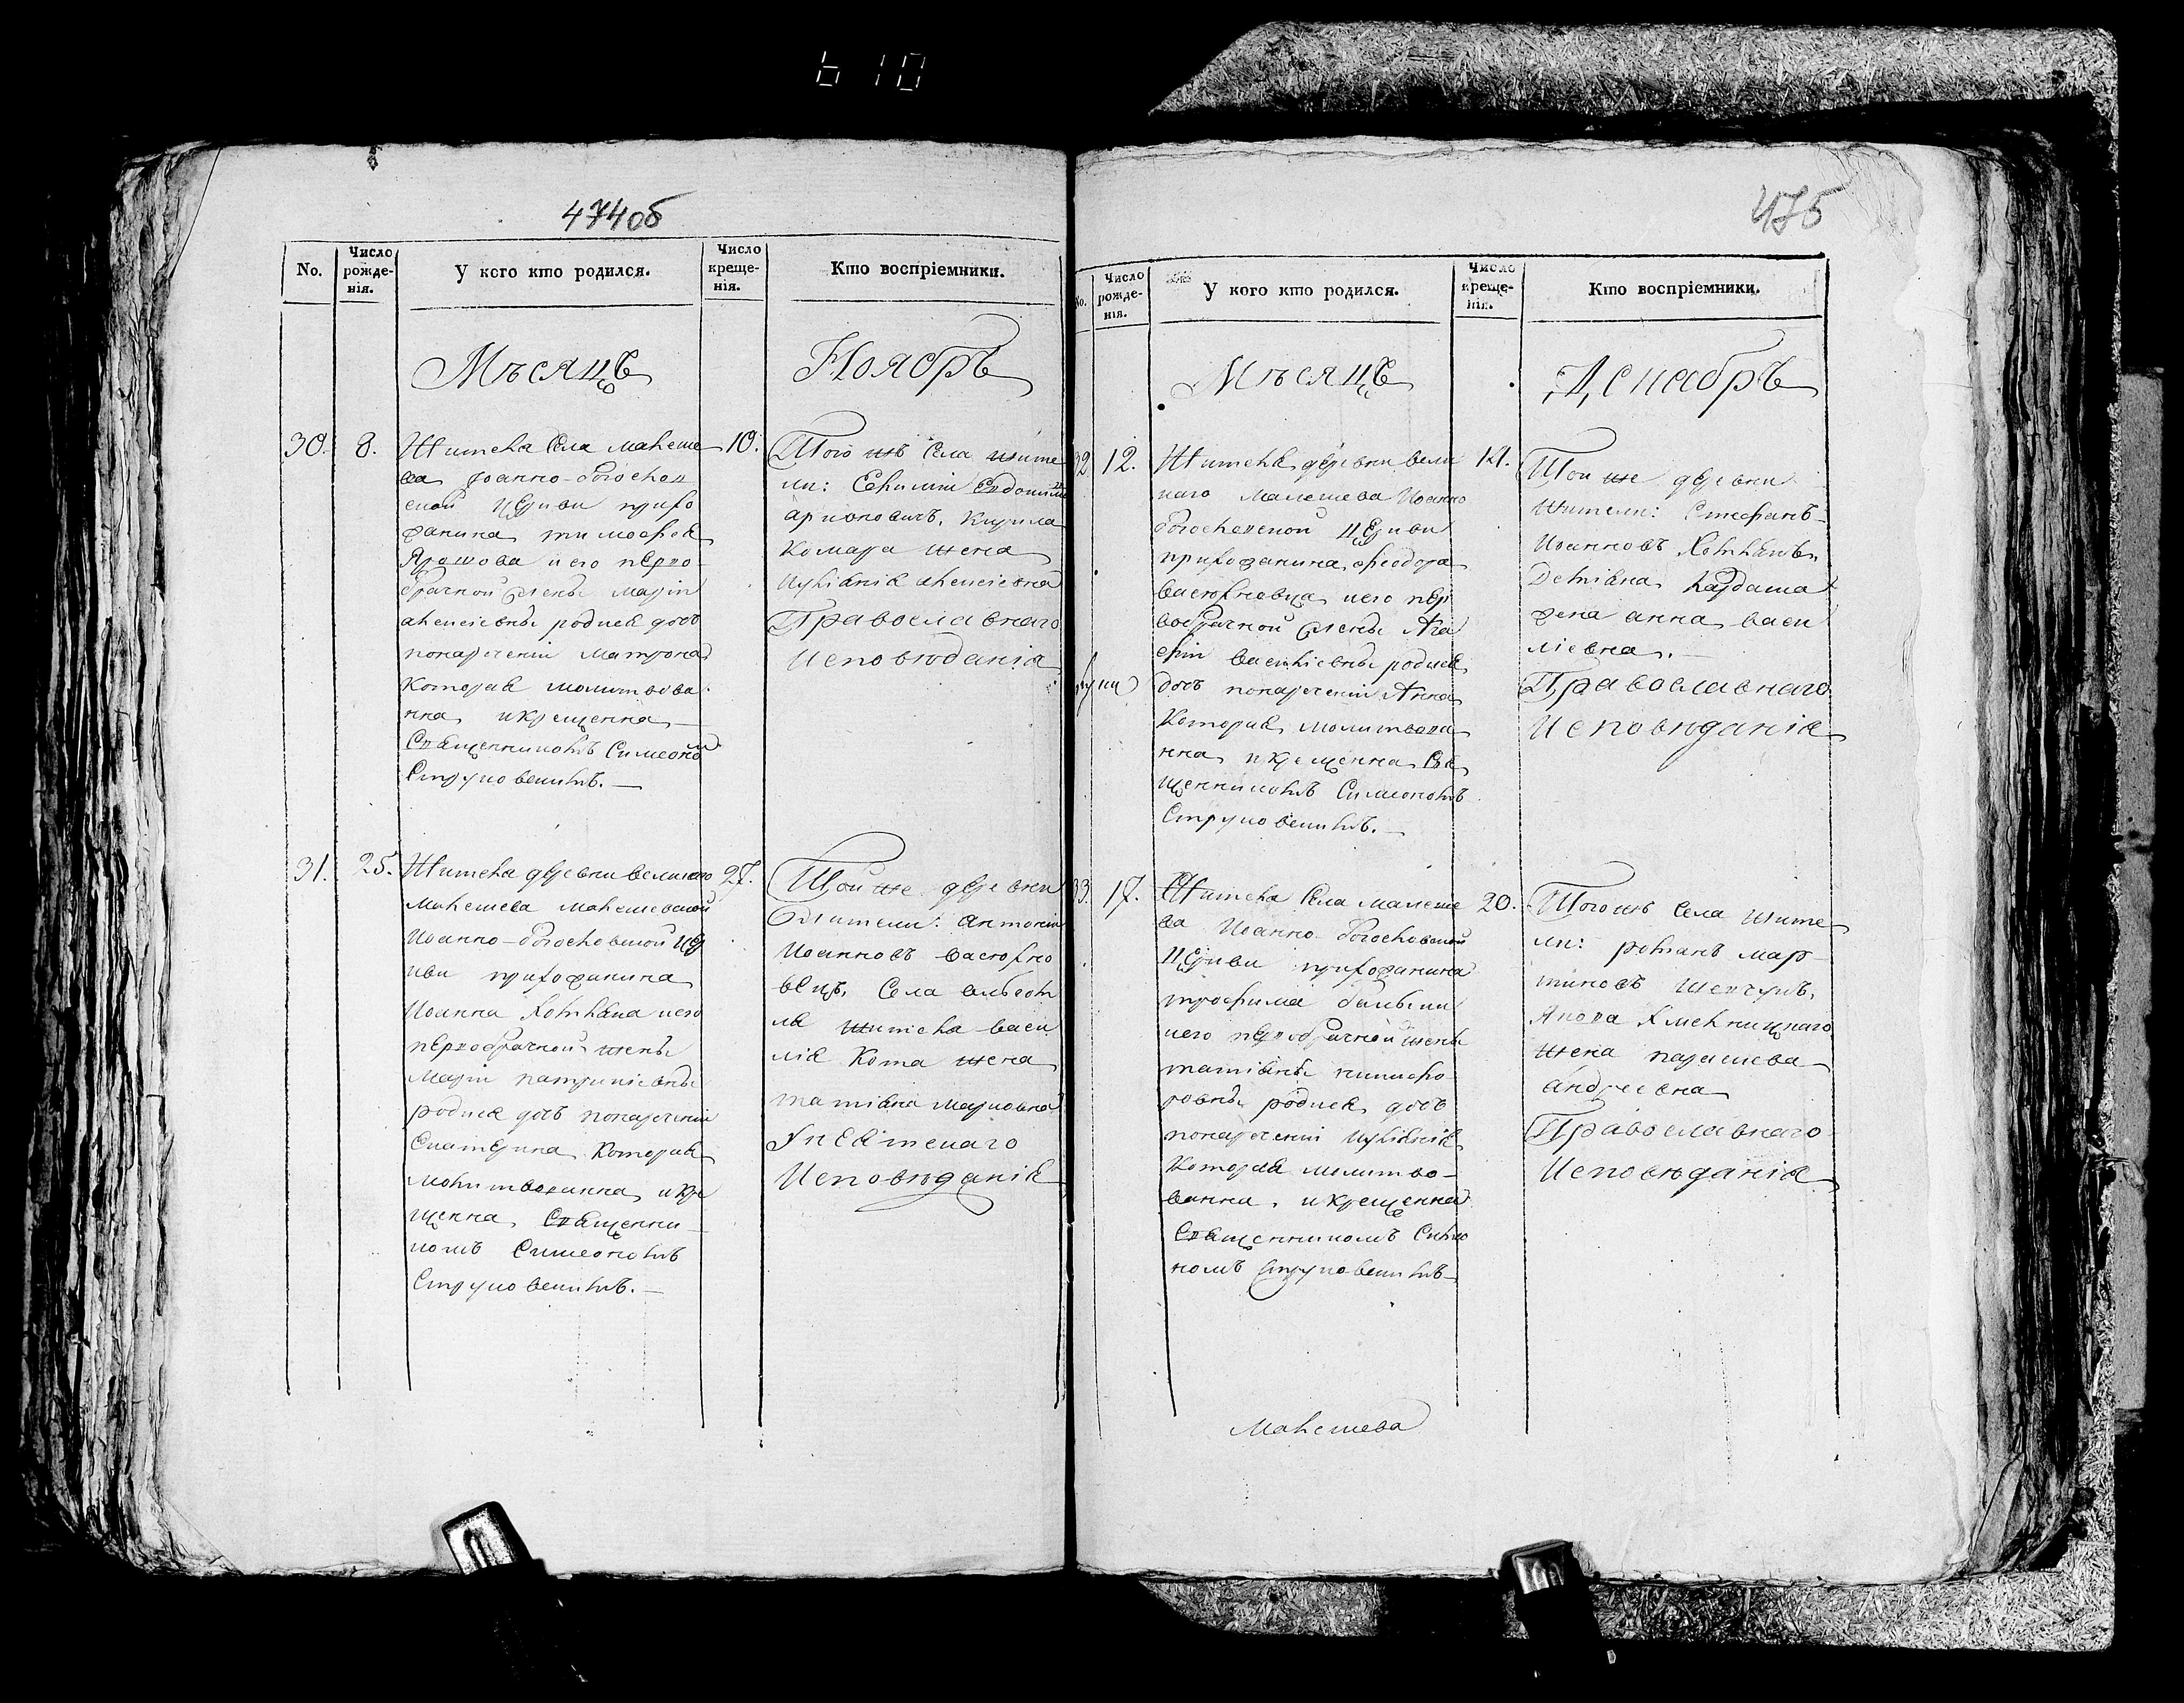 610
474об
No.
Число рожде-нія.
У кого кто родился.
Число креще-нія.
Кто воспріемники.
Мѣсяцъ
Ноябръ
30.
8.
Жителя Села малеше
ва Іоанно-богослов
ской Церкви прихо
жанина тимофея
Ярошова и его перво
брачной жены Маріи
алексіевны родися дочь
понареченіи Матрона
Которая молитвова
нна икрещенна
Священникомъ Симеоном
Струковскимъ.—
10.
Того жъ Села жите
ли:
Кирила
Комара жена
Иуліанія алексіевна
Православнаго
Исповѣданія
31.
25.
Жителя деревни великаго
Малешева малешевской
Иоанно-богословской Цер
кви прихожанина
Иоанна
иего
первобрачной жены
Маріи патрикіевны
родися дочь понареченіи
Екатерина Которая
молитвованна икре
щенна, Священни
комъ Симеономъ
Струковскимъ.—
27.
Той же деревни
жители: Антоній
Иоанновъ васюхно
вецъ, Села
жителя васи
лія Кота жена
татіана марковна
Уніятскаго
Исповѣданія
475
No.
Число рожде-нія.
У кого кто родился.
Число креще-нія.
Кто воспріемники.
Мѣсяцъ
Декабръ
32
12.
Жителя деревни вели
каго Малешева Иоанно
богословской Церкви
прихожанина феодора
васюхновца иего пер
вобрачной жены Ага
фіи василіевны родися
дочь понареченіи Анна
Которая молитвова
нна икрещенна Свя
щенникомъ Симеономъ
Струковскимъ.—
14.
Той же деревни
жители: Стефанъ
Иоанновъ
Деміана Кардаша
жена анна васи
ліевна.—
Православнаго
Исповѣданія
33.
17.
Жителя Села малеше
ва Иоанно богословской
Церкви прихожанина
трофима
иего первобрачной жены
татіаны никифо
ровны родися дочь
понареченіи Иуліанія
Которая молитво-
ванна, икрещенна
Священникомъ Симео
номъ Струковскимъ
20.
Того жъ Села жите
ли: романъ мар
тиновъ шевчукъ,
Якова Хмелницкаго
жена параскева
андреевна
Православнаго
Исповѣданія
Малешева